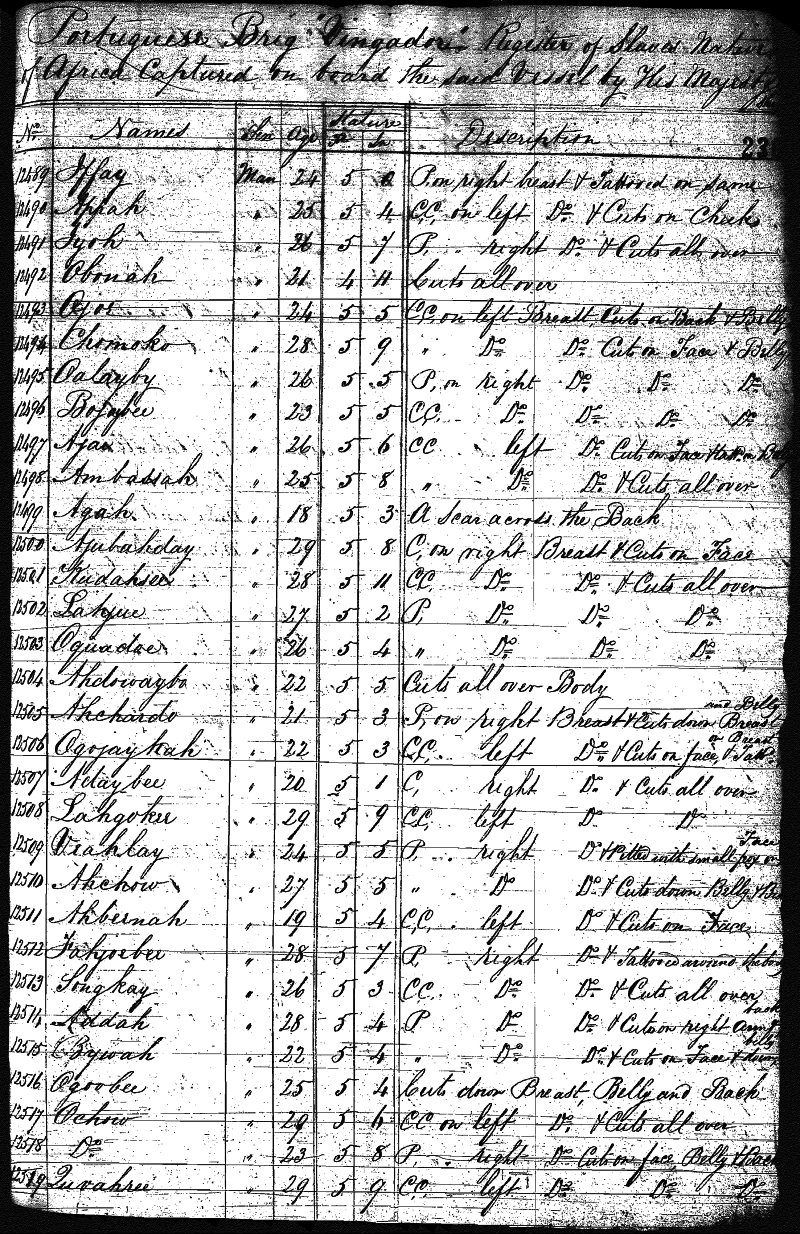 Portuguese Brig "Vingador" Register of Slaves Natives
of Africa Captured on board the said Vessel by His Majesty's
No. Names Sex Age Stature Description
Ft In 23
12489 Iffay Man 24 5 2 P, on right breast & Tattooed on same
12490 Appah " 25 5 4 CC, on left Do. & Cuts on Cheek
12491 Iyoh " 26 5 7 P, .. right Do. & Cuts all over
12492 Obonah " 21 4 11 Cuts all over
12493 Ojoe " 24 5 5 CC, on left Breast, Cuts on Back & Belly
12494 Chomoko " 28 5 9 " Do Do. Cuts on Face & Belly
12495 Oalayby " 26 5 5 P, on right Do Do Do
12496 Bojaybee " 23 5 5 CC. Do Do Do Do
12497 Ajan " 26 5 6 CC left Do. Cuts on Face
12498 Ambassah " 25 5 8 " Do Do. & Cuts all over
12499 Agah " 18 5 3 A Scar across the Back
12500 Ajubahday " 29 5 8 C, on right Breast & Cuts on Face
12501 " 28 5 11 CC. Do Do. & Cuts all over
12502 Lahjue " 27 5 2 P, Do Do Do
12503 Oguadoe " 26 5 4 " Do Do Do
12504 Ahdowaybo " 22 5 5 Cuts all over Body
and Belly
12505 Ahchardo " 21 5 3 P, on right Breast & Cuts down Breast
on Breast
12506 Ogojaykah " 22 5 3 CC. left Do & Cuts on face, & Tatt.
12507 Adaybee " 20 5 1 C, right Do. & Cuts all over
12508 Lahgoker " 29 5 9 CC, left Do Do
Face
12509 Viahlay " 24 5 5 P, .. right Do & Pitted with small pox on
12510 Ahchow " 27 5 5 " Do Do. & Cuts down Belly &
12511 Ahbernah " 19 5 4 CC, . left Do & Cuts on Face
12512 Fahjoebee " 28 5 7 P. right Do & Tattooed around the body
12513 Songkay " 26 5 3 CC. Do Do. & Cuts all over
back
12514 Addah " 28 5 4 P Do Do. & Cuts on right arm &
belly
12515 Bywah " 22 5 4 " Do Do. & Cuts on Face & down
12516 Ogoobee " 25 5 4 Cuts down Breast, Belly and Back
12517 Ochow " 29 5 6 CC on left Do. & Cuts all over
12518 Do " 23 5 8 P, . right Do Cuts on face, Belly & Back
12519 Quvahree " 29 5 9 CC, left Do Do Do